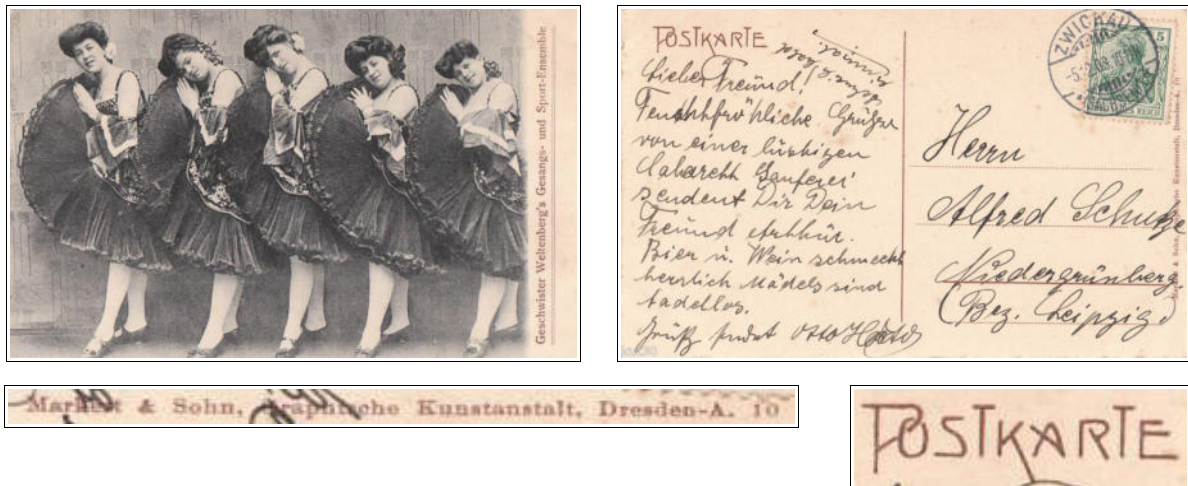 Geschwister Weltenberg's Gesangs- und Sport-Ensemble
POSTKARTE
Lieber Freund!
Feuchtfröhliche Grüsse
von einer lustigen
sendent Dir Dein
Freund Arthur.
Bier u. Wein schmeckt
herrlich Mädels sind
tadellos.
Otto
ZWICKAU
5
Herrn
Alfred Schulze
Niedergrünberg.
(Bez. Leipzig.)
& Sohn, Graphische Kunstanstalt, Dresden-A. 10
POSTKARTE